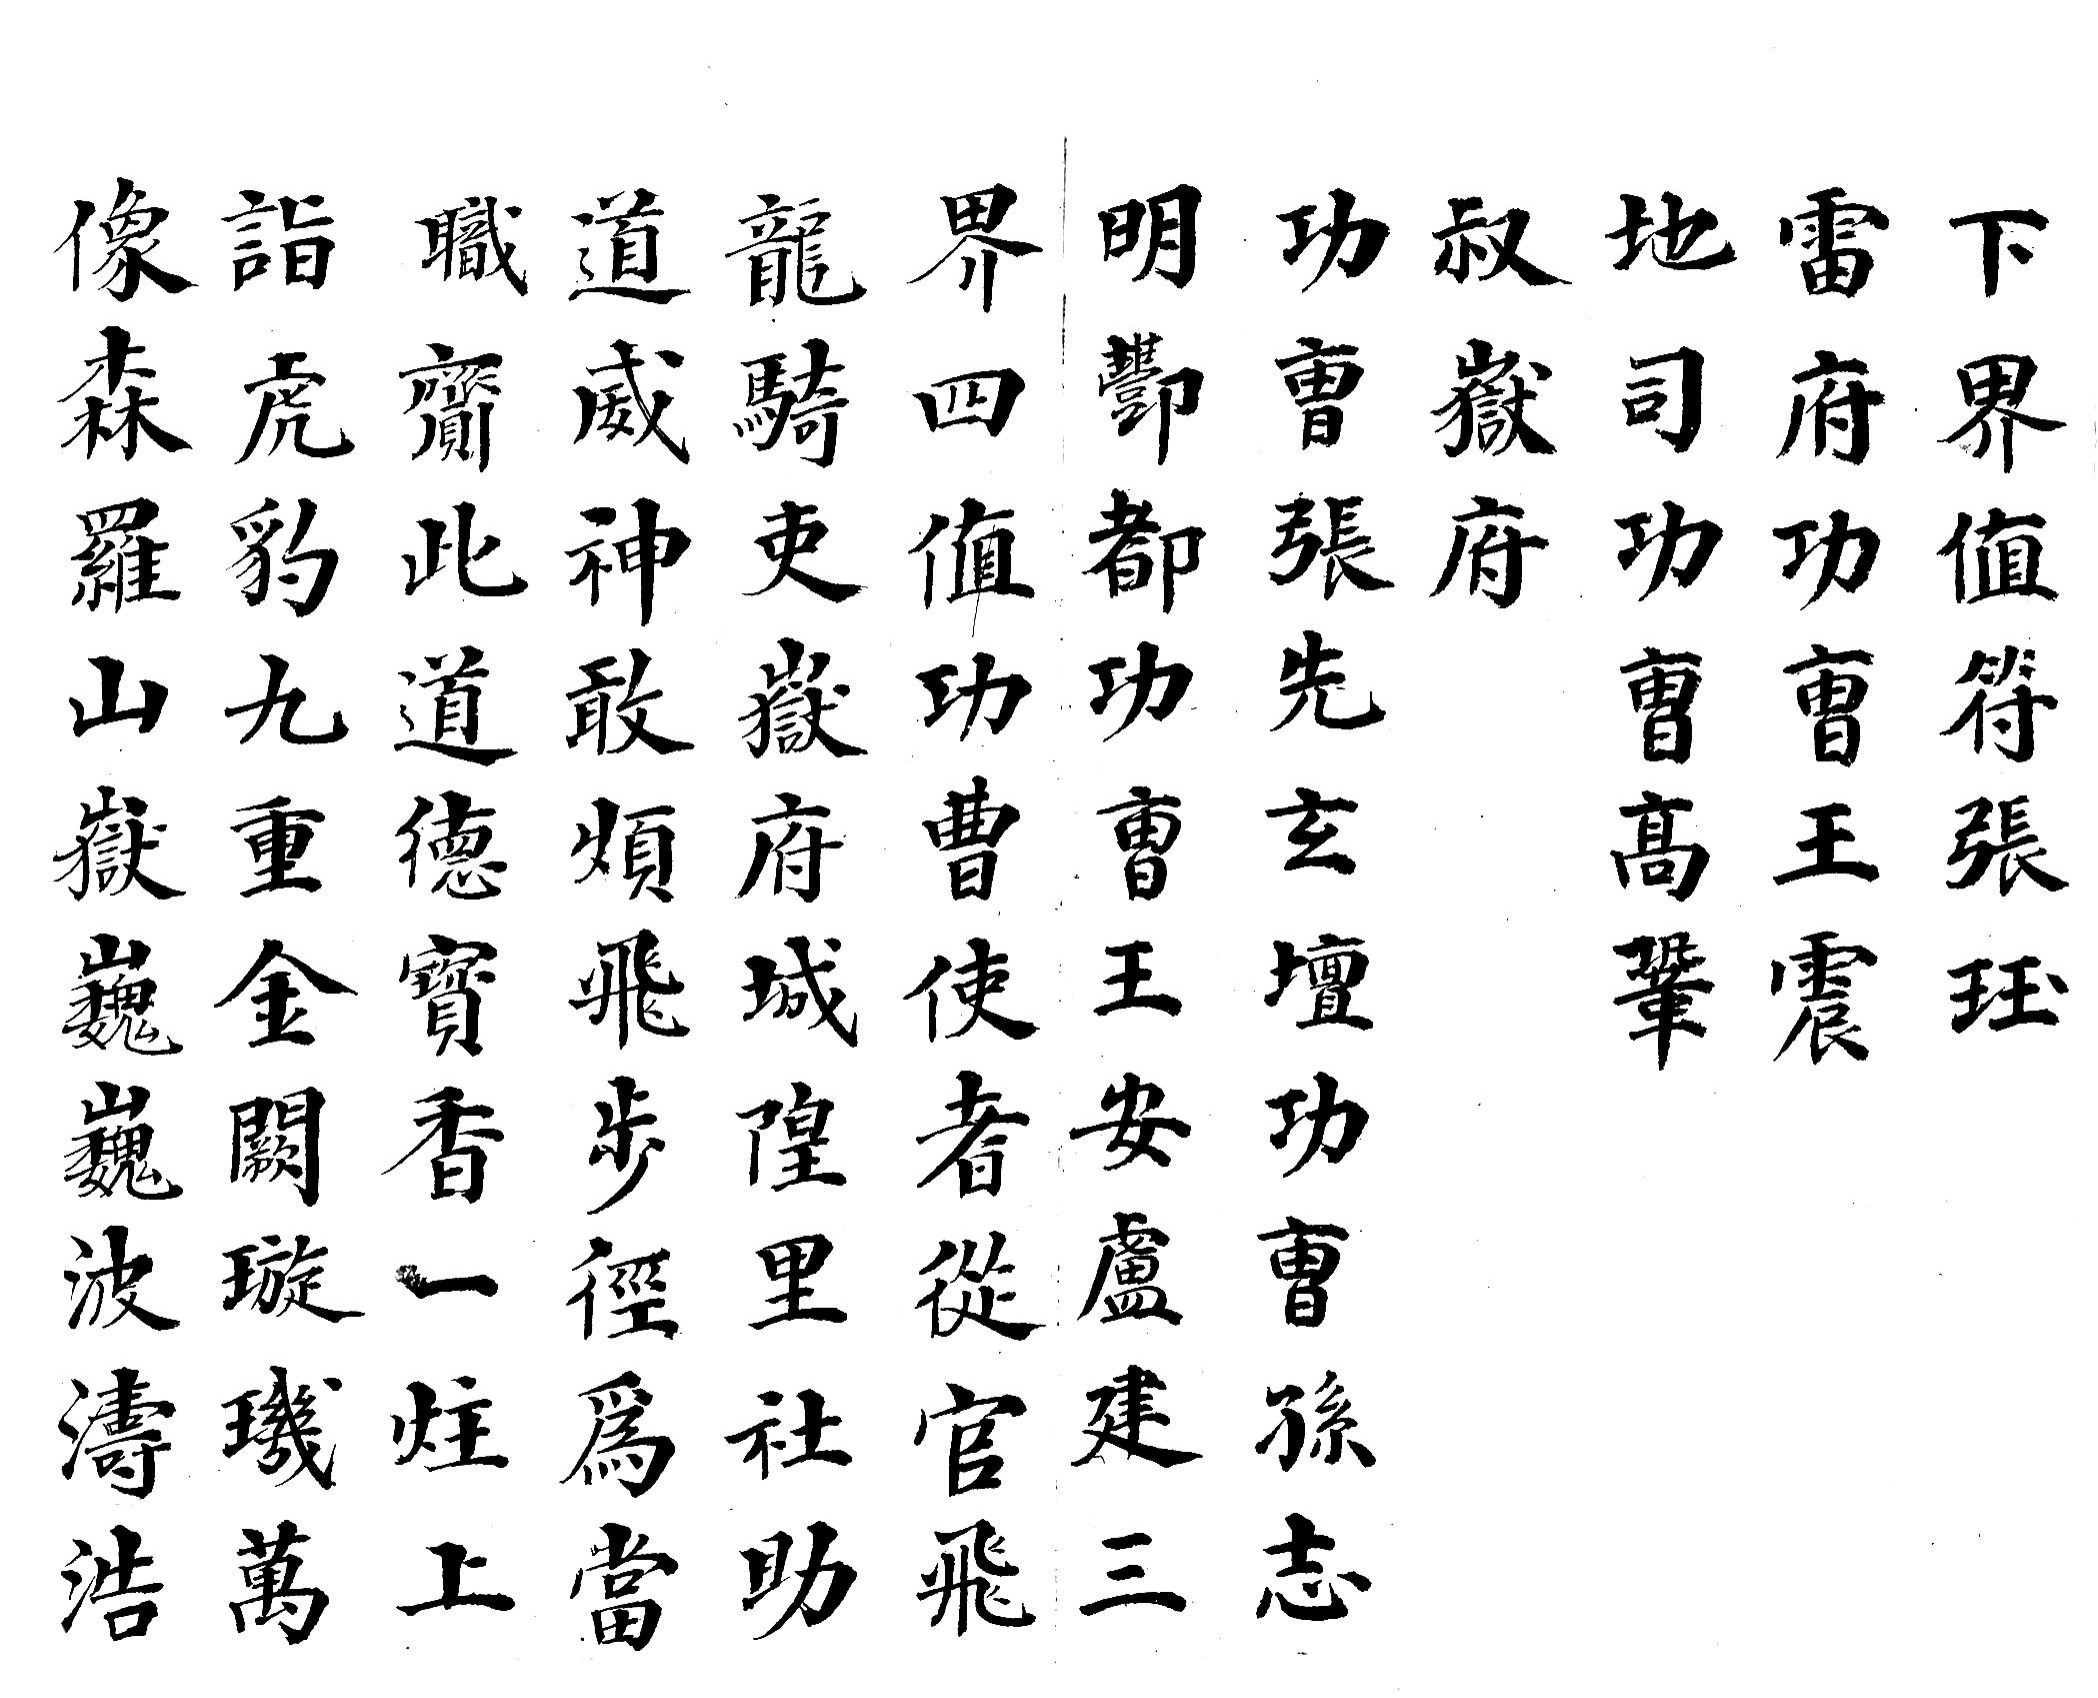 下界值符張珏
雷府功曺王震
地司功曺髙鞏
叔嶽府
功曺張先玄壇功曺孫志
明酆都功曺王安盧建三
界四值功曹使者從官飛
龍騎吏嶽府城隍里社助
道威神敢煩飛步徑爲當
職齎此道德寳香一炷上
詣虎豹九重金闕璇璣萬
像森羅山嶽巍巍波濤浩